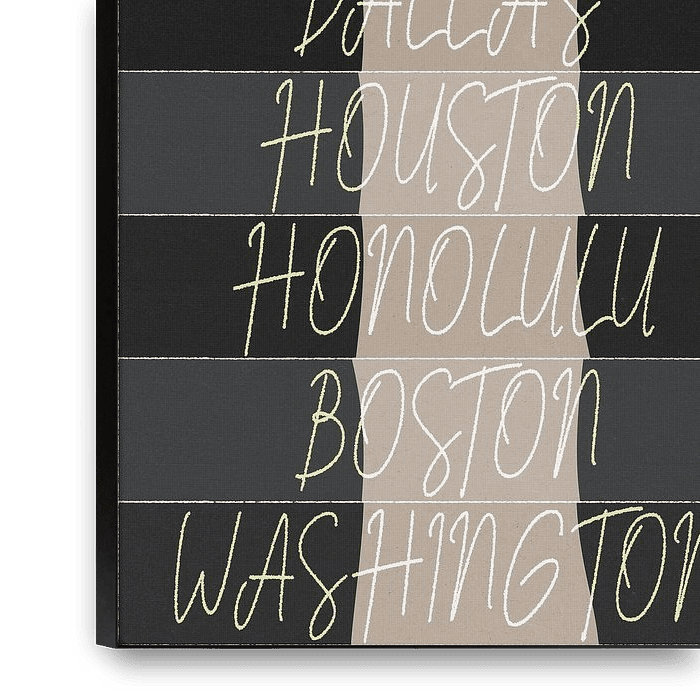 DALLAS
HOUSTON
HONOLULU
BOSTON
WASHINGTON